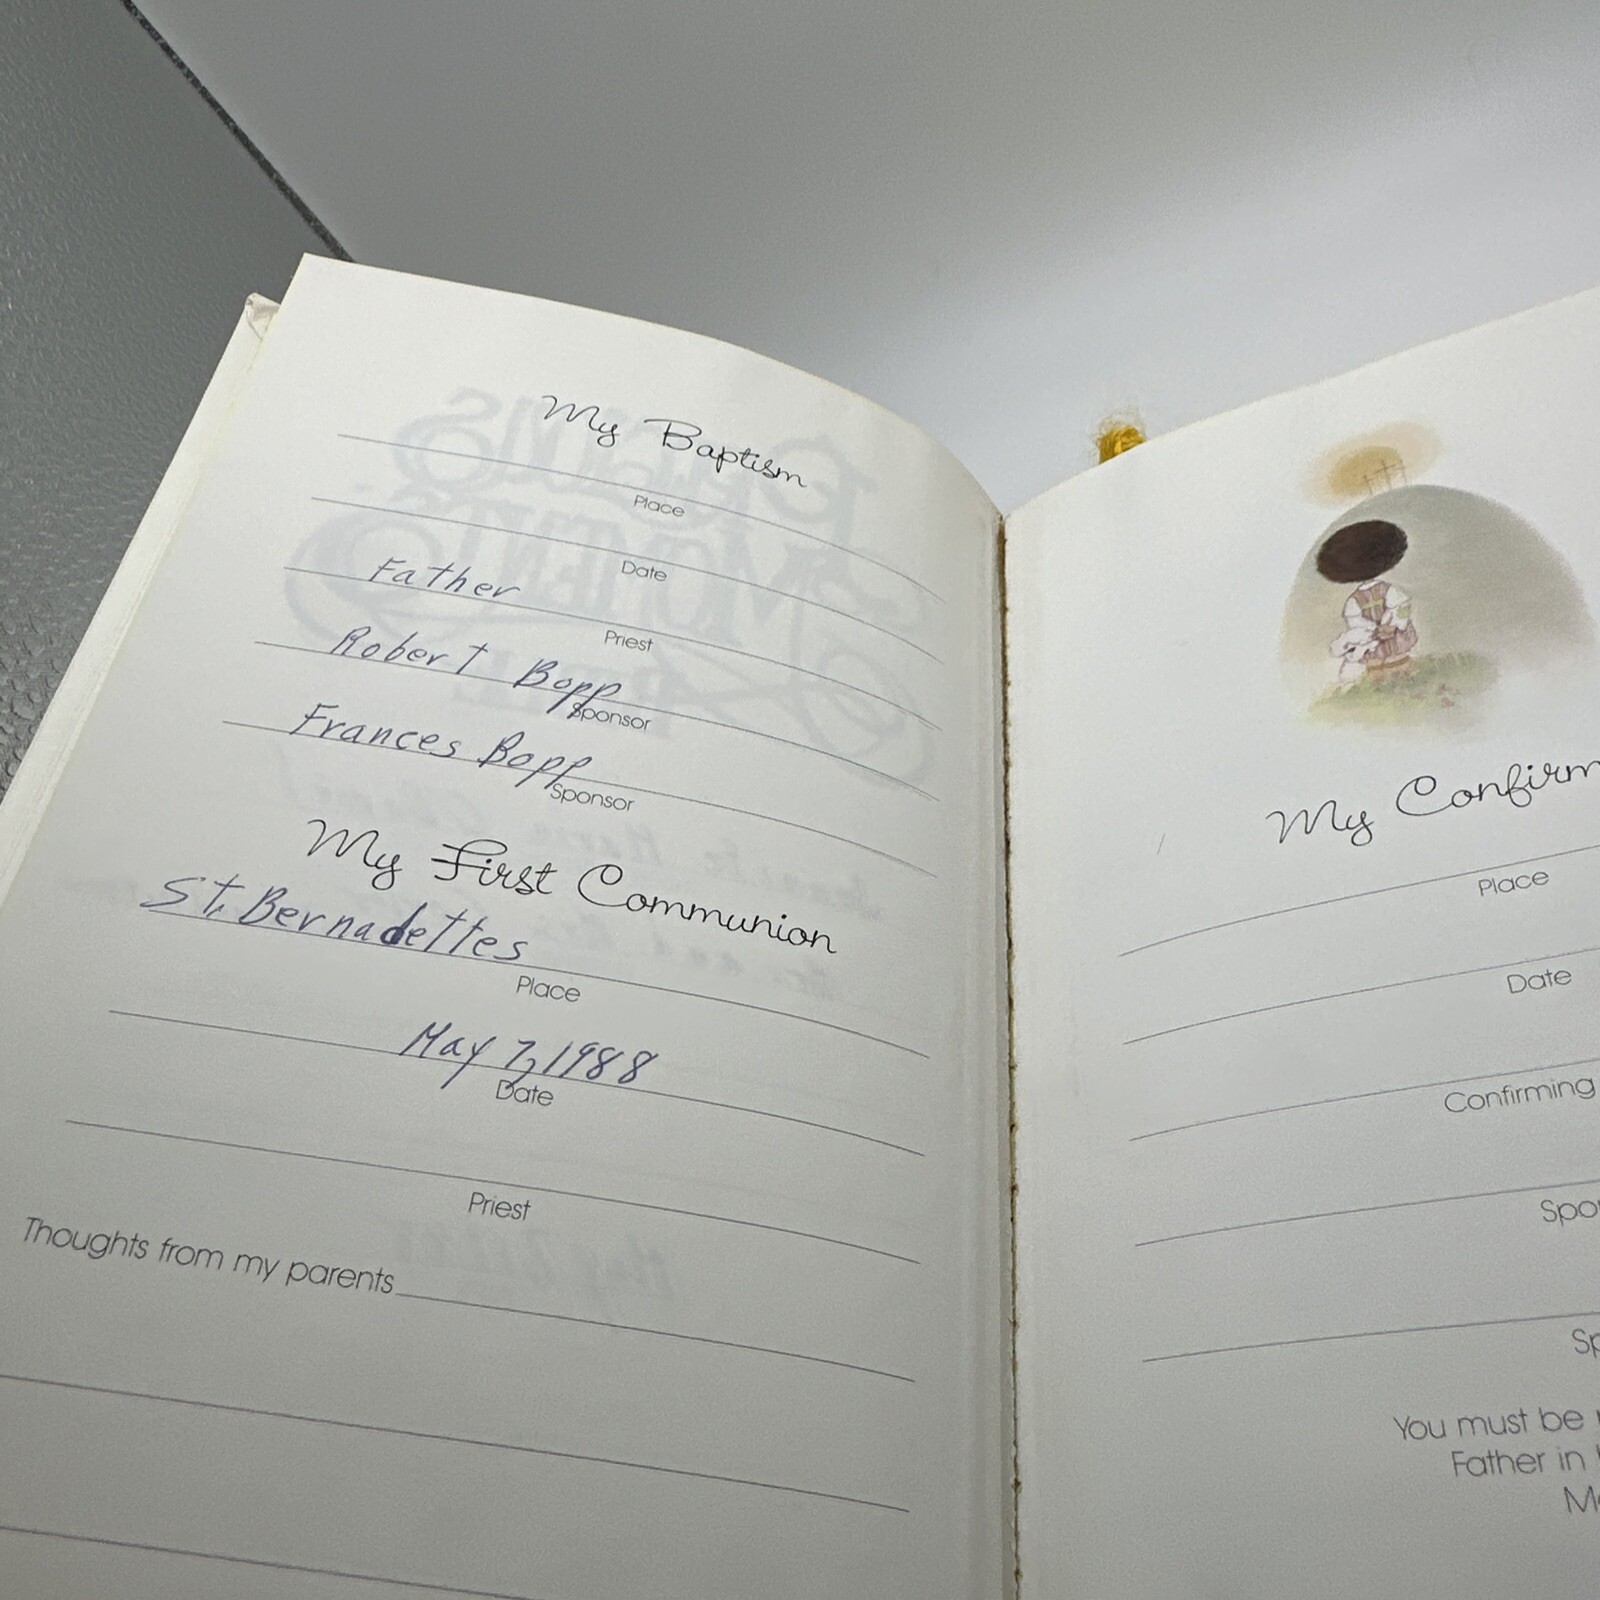 My Baptism
Place
Date
Father
Priest
Robert Bopp
Sponsor
Frances Bopp
Sponsor
My First Communion
St. Bernadettes
Place
May 7, 1988
Date
Priest
Thoughts from my parents
My Confirm
Place
Date
Confirming
Spo
Sp
You must be
Father in
M